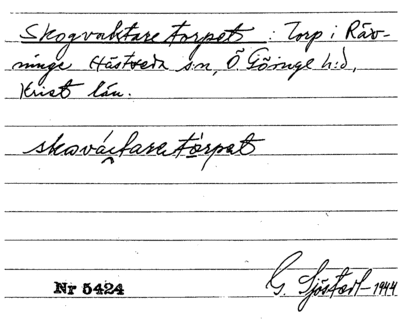 Skogvaktaretorpet : Torp i Räv-
ninge Hästveda sn, Ö Göinge h:d,
Krist län.
skavácktaretórpat
Nr 5424
G. Sjöstedt-1944